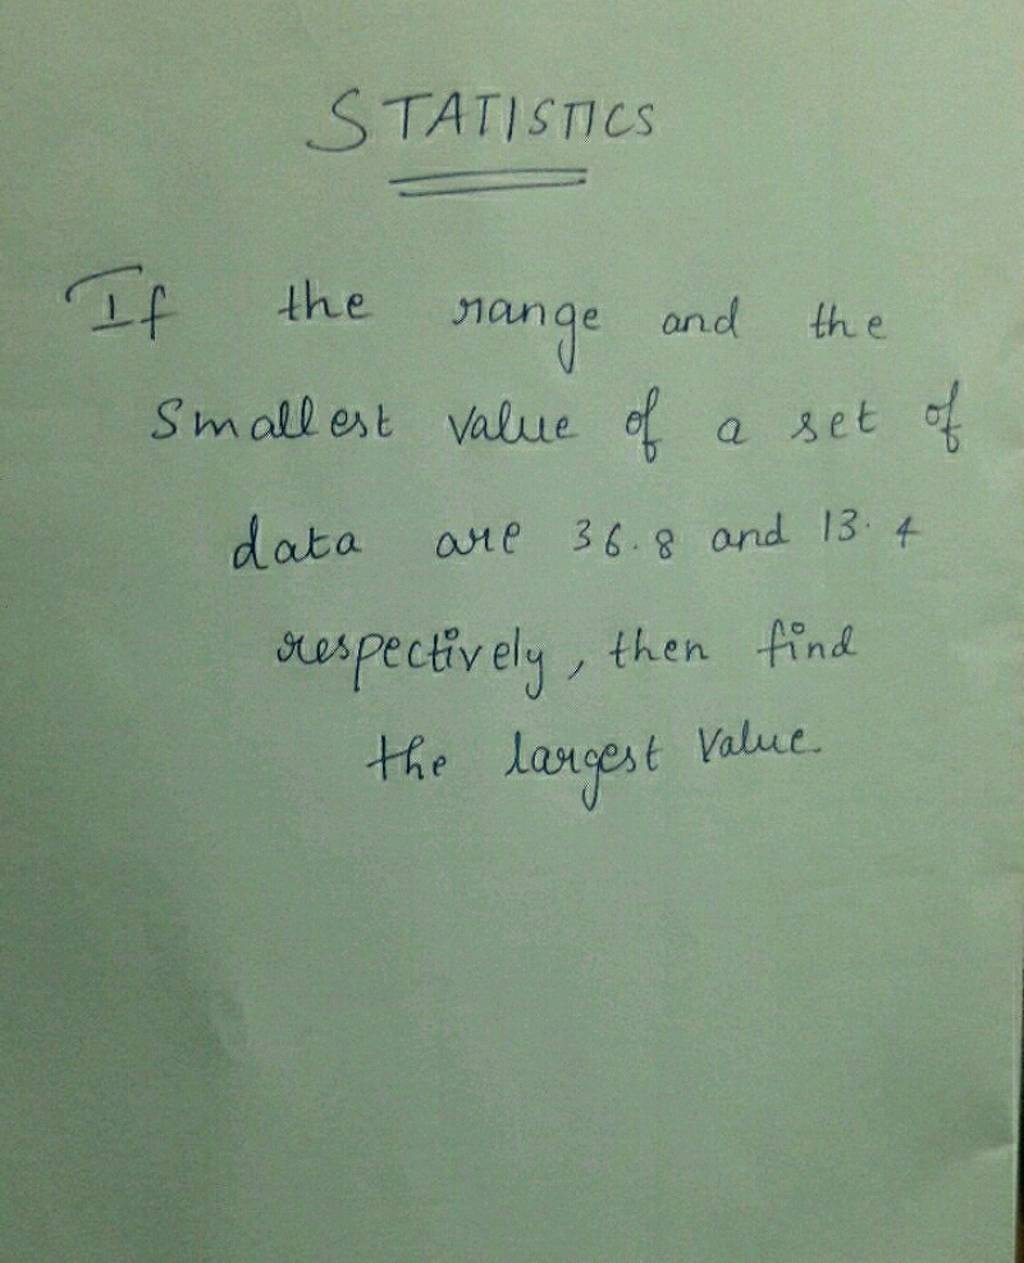 STATISTICS
If the range and the
Smallest value of a set of
data are 36.8 and 13.4
respectively, then find
the largest value.